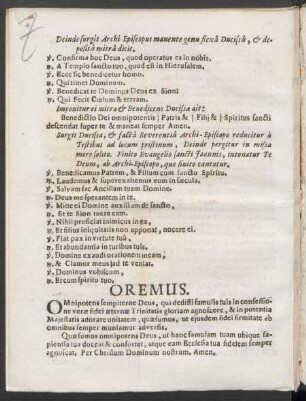 Deinde surgit Archi Episcopus manente genu flexâ Ducissâ, & de-
positâ mitrâ dicit.
℣. Confirma hoc Deus, quod operatus es in nobis.
℟. A Templo sancto tuo, quod est in Hierusalem.
℣. Ecce sic benedicetur homo.
℟. Qui timet Dominum.
℣. Benedicat te Dominus Deus ex Sion
℟. Qui Fecit Cœlum & terram.
Imponitur ei mitra & Benedicens Ducissa ait:
Benedictio Dei omnipotentis † Patris & † Filij & † Spiritus sancti
descendat super te & maneat semper Amen.
Surgit Ducissa, & factâ Reverentiâ Archi-Episcopo reducitur à
Testibus ad locum pristinum, Deinde pergitur in missa
more solito. Finito Evangelio sancti Joannis, intonatur Te
Deum, ab Archi-Episcopo, quo finito cantatur.
℣. Benedicamus Patrem, & Filium cum sancto Spiritu.
℟. Laudemus & superexaltemus eum in sæcula.
℣. Salvam fac Ancillam tuam Domine.
℟. Deus meus sperantem in te.
℣. Mitte ei Domine auxilium de sancto,
℟. Et de Sion tuere eam.
℣. Nihil proficiat inimicus in ea,
℟. Et filius iniquitatis non apponat, nocere ei.
℣. Fiat pax in virtute tua,
℟. Et abundantia in turibus tuis.
℣. Domine exaudi orationem meam,
℟. & Clamor meus ad te veniat.
℣. Dominus vobiscum,
℟. Et cum spiritu tuo,
OREMUS.
OMnipotens sempiterne Deus, qui dedisti famulis tuis in confessio-
ne veræ fidei æternæ Trinitatis gloriam agnoscere, & in potentia
Majestatis adorare unitatem, quæsumus, ut ejusdem fidei firmitate ab
omnibus semper muniamur adversis.
Quæsumus omnipotens Deus, ut hanc famulam tuam ubique sa-
pientia tua doceat & confortet, atque eam Ecclesia tua fidelem semper
agnoscat. Per Christum Dominum nostrum. Amen.